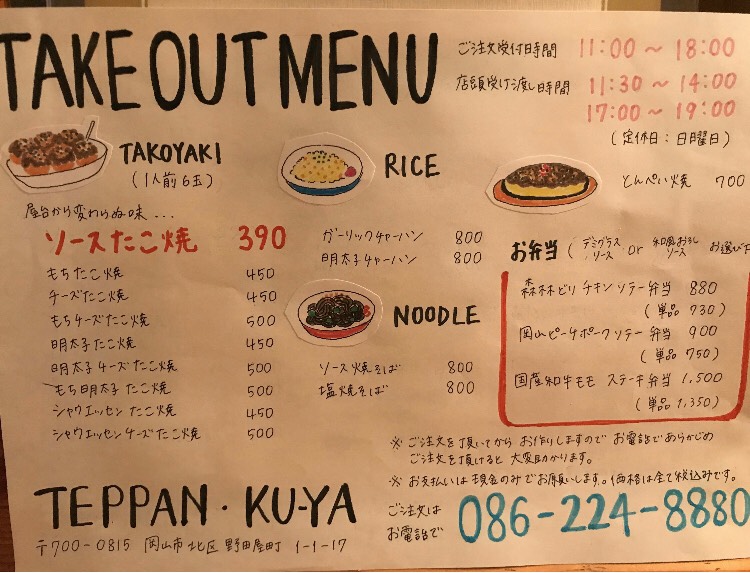 TAKE OUT MENU
ご注文受付時間 11:00〜18:00
店頭受け渡し時間 11:30〜14:00
17:00〜19:00
(定休日:日曜日)
TAKOYAKI
(1人前6玉)
屋台から変わらぬ味...
ソースたこ焼 390
もちたこ焼 450
チーズたこ焼 450
もちチーズたこ焼 500
明太子たこ焼 450
明太子チーズたこ焼 500
もち明太子たこ焼 500
シャウエッセンたこ焼 450
シャウエッセンチーズたこ焼 500
RICE
ガーリックチャーハン 800
明太子チャーハン 800
NOODLE
ソース焼そば 800
塩焼そば 800
とんぺい焼 700
お弁当(デミグラスソース or 和風おろしソース お選び下
森林どりチキンソテー弁当 880
(単品 730)
岡山ピーチポークソテー弁当 900
(単品 750)
国産和牛モモステーキ弁当 1,500
(単品 1,350)
※ご注文を頂いてからお作りしますのでお電話であらかじめ
ご注文を頂けると大変助かります。
※お支払いは現金のみでお願いします。価格は全て税込みです。
ご注文は
お電話で 086-224-8880
TEPPAN・KU-YA
〒700-0815 岡山市北区野田屋町 1-1-17